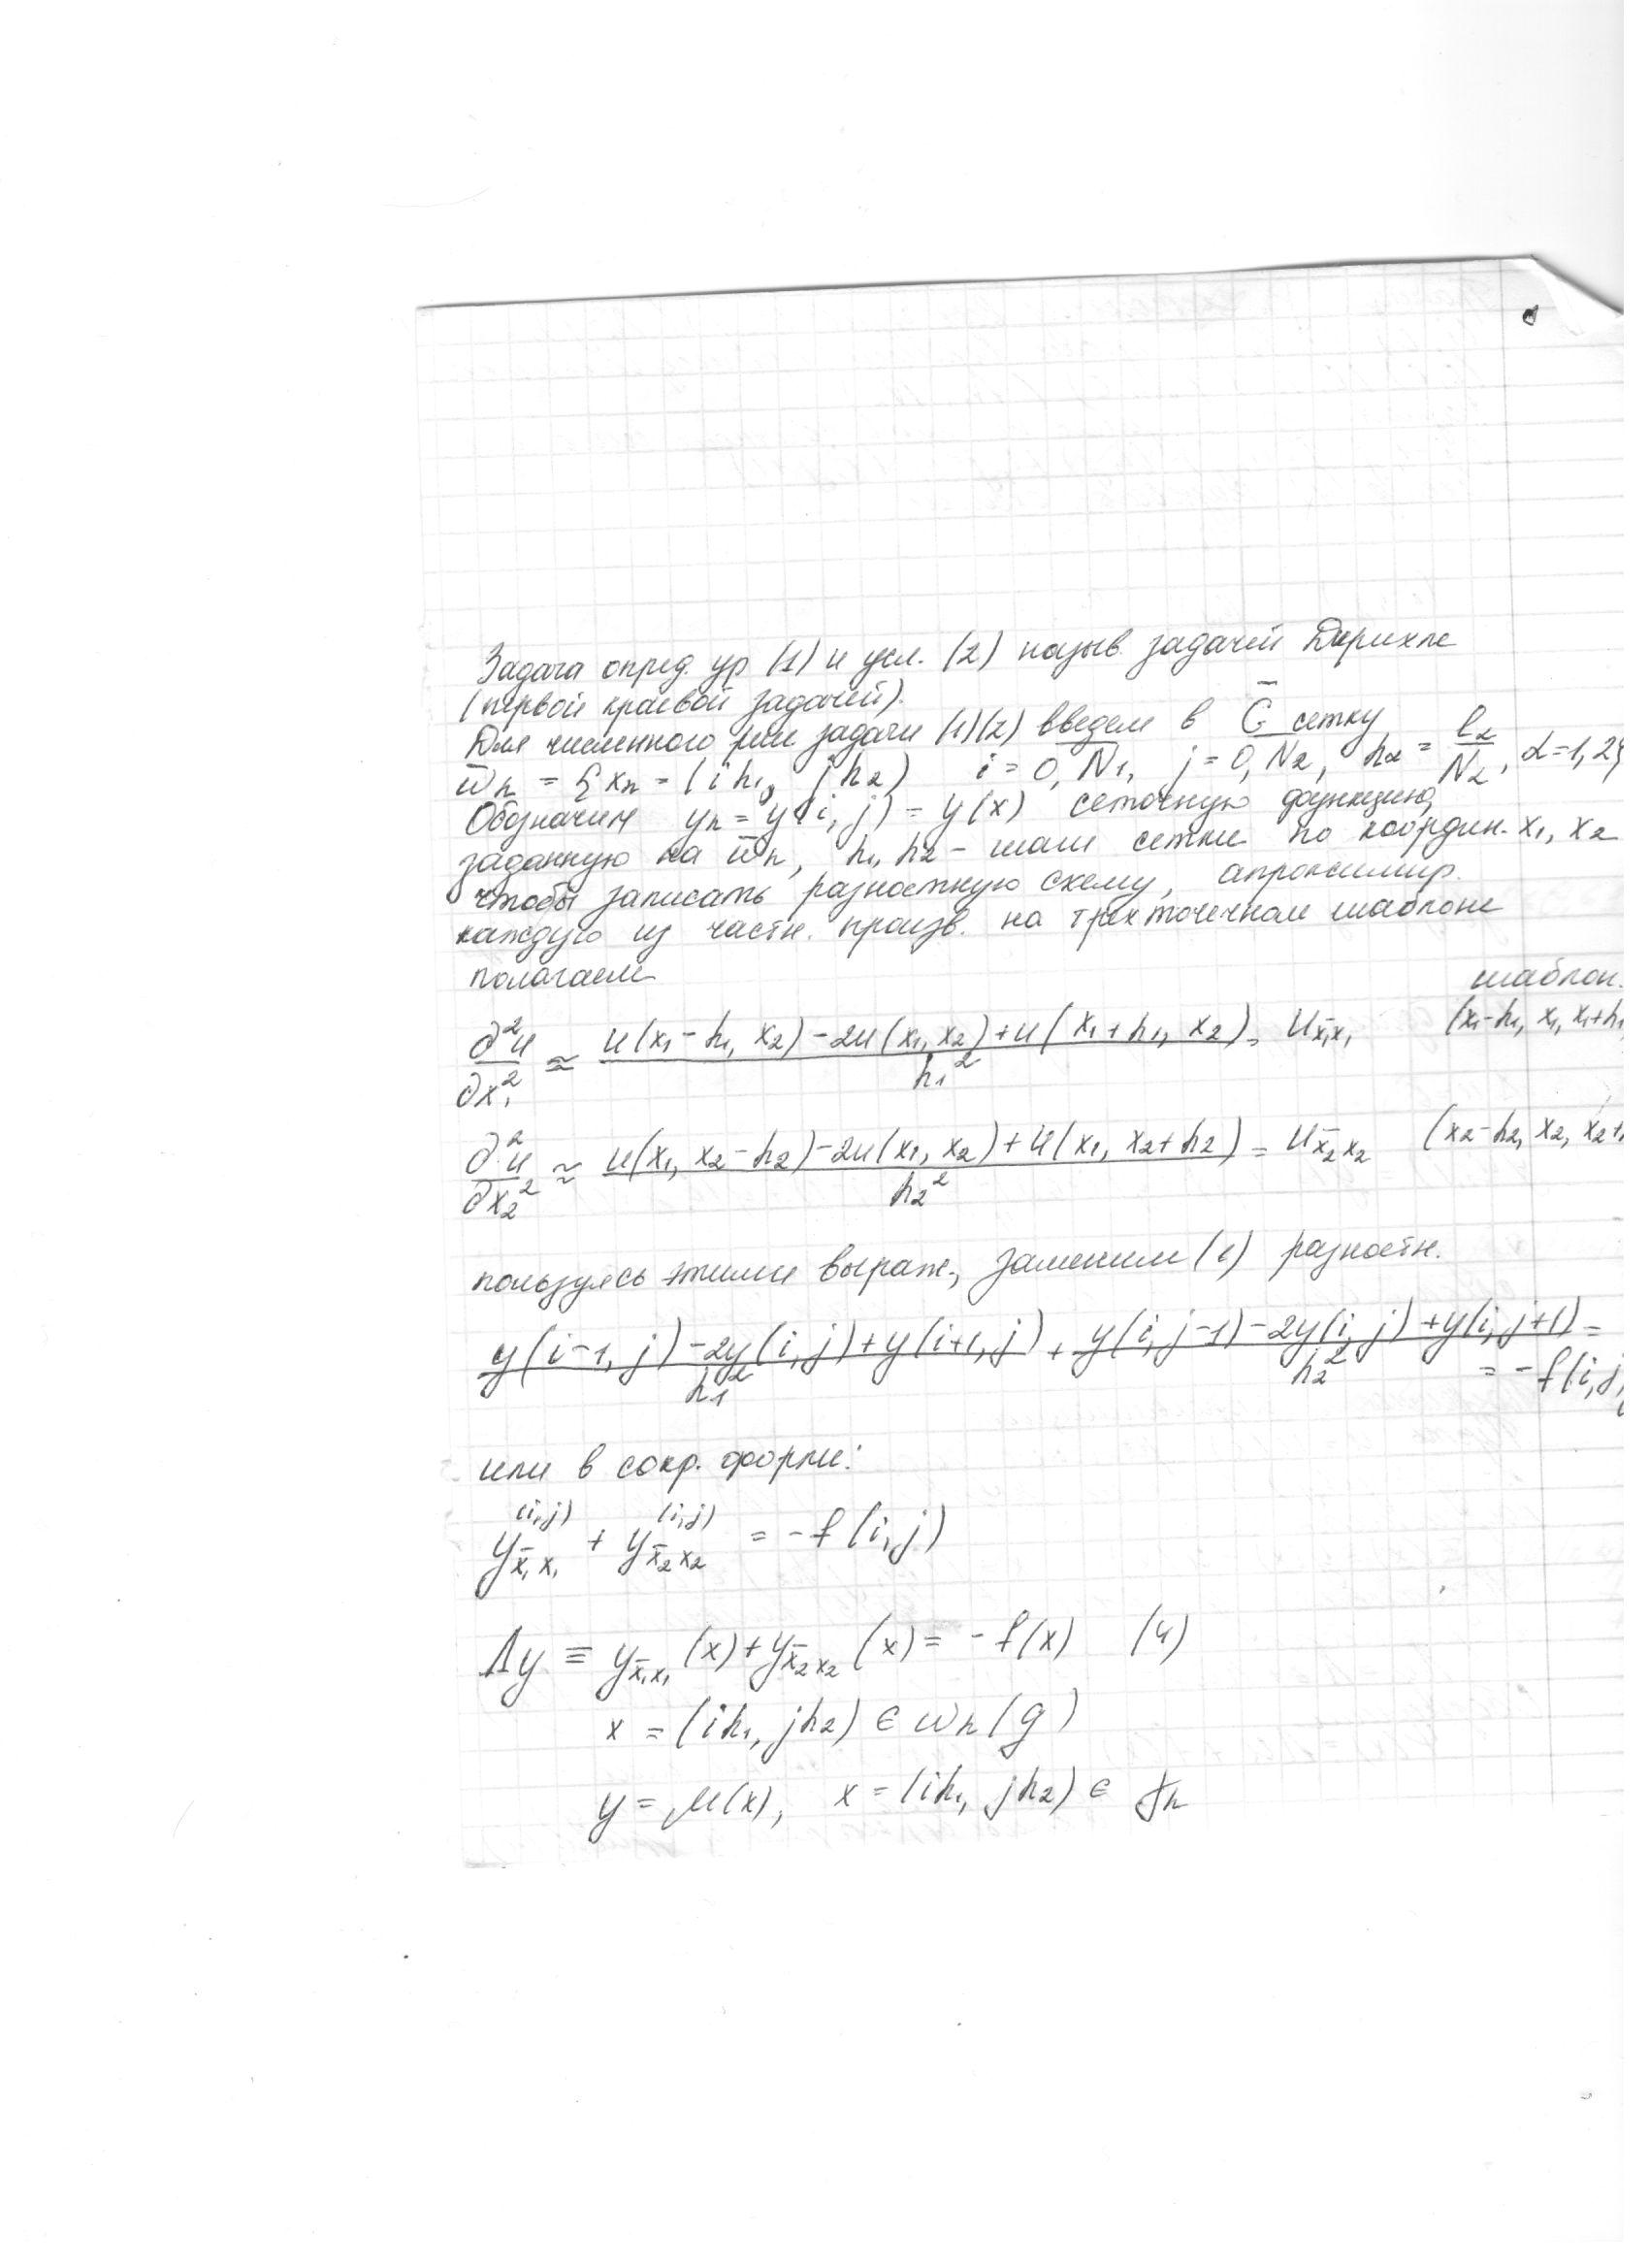 Задача опред. ур (1) и усл. (2) назыв. задачей Дирихле
(первой краевой задачей).
Для численного реш задачи (1)(2) введем в G̅ сетку
ω̅h = {xn = (ih₁, jh₂) i = 0, N₁, j = 0, N₂, hα = lα/Nα, α=1,2}
Обозначим yh = y(i, j) = y(x) сеточную функцию,
заданную на ω̅h, h₁, h₂ - шаги сетки по координ. x₁, x₂
чтобы записать разностную схему, апроксимир.
каждую из частн. произв. на трехточечном шаблоне
полагаем шаблон.
∂²u/∂x₁² ≈ (u(x₁-h₁, x₂)-2u(x₁,x₂)+u(x₁+h₁, x₂))/h₁² = u x̅₁x₁ (x₁-h₁, x₁, x₁+h₁
∂²u/∂x₂² ≈ (u(x₁, x₂-h₂)-2u(x₁, x₂)+u(x₁, x₂+h₂))/h₂² = u x̅₂x₂ (x₂-h₂, x₂, x₂+
пользуясь этими выраж., заменим (1) разностн.
(y(i-1, j)-2y(i, j)+y(i+1, j))/h₁² + (y(i, j-1)-2y(i, j)+y(i, j+1))/h₂² =
= -f(i,j)
или в сокр. форме:
y x̅₁x₁ (i,j) + y x̅₂x₂ (i,j) = -f(i,j)
Λy ≡ y x̅₁x₁ (x)+y x̅₂x₂ (x) = -f(x) (4)
x = (ih₁, jh₂) ∈ ωh(g)
y = μ(x), x = (ih₁, jh₂) ∈ γh